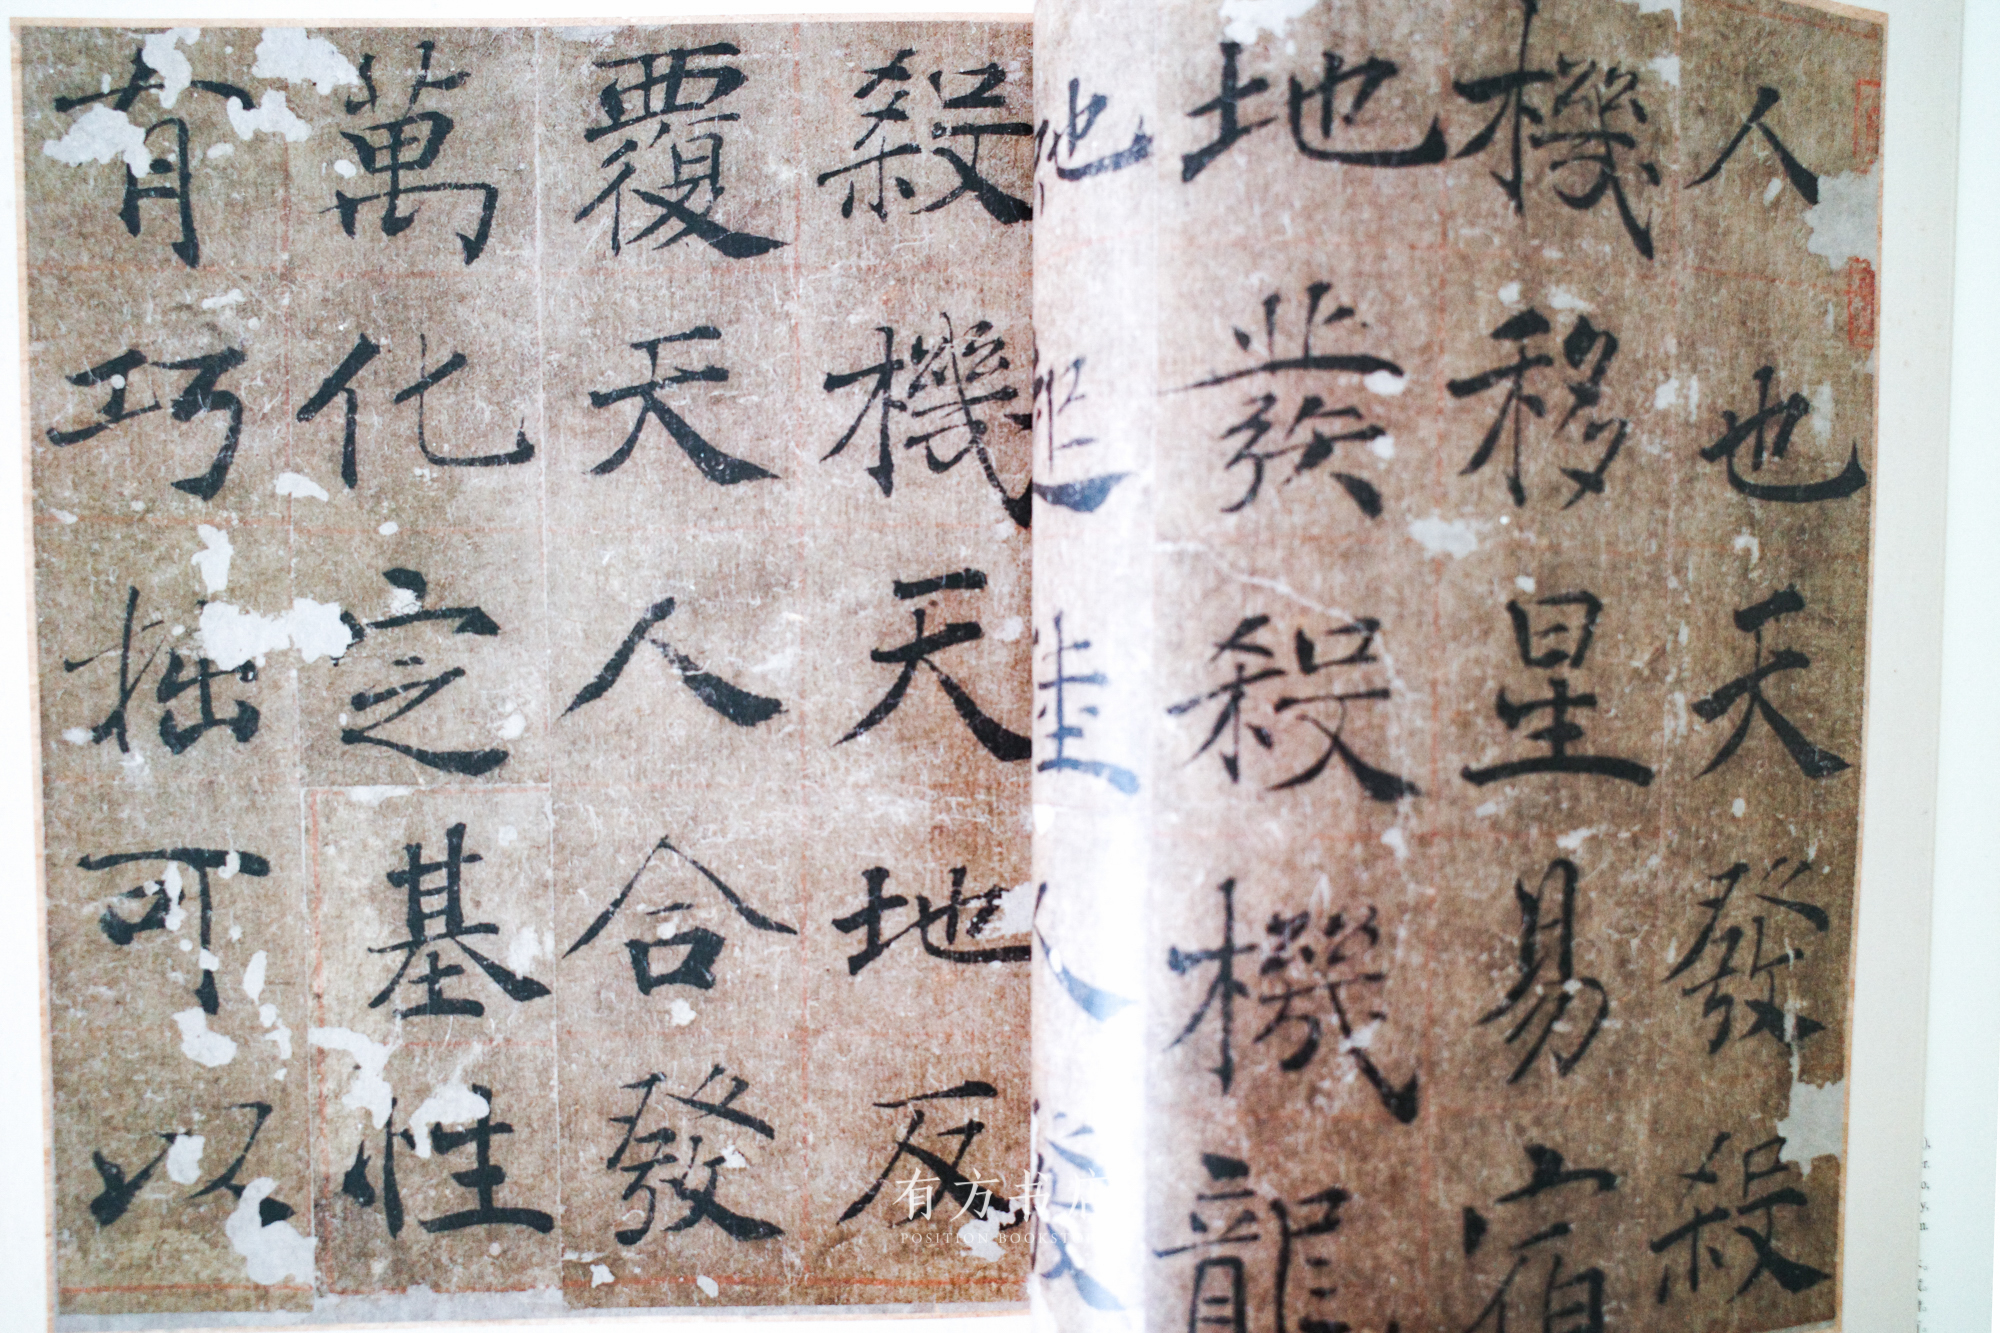 人也天發殺
機移星易宿
地發殺機龍
殺機天地反
覆天人合發
萬化定基性
有巧拙可以
有方书
POSITION BOOKS